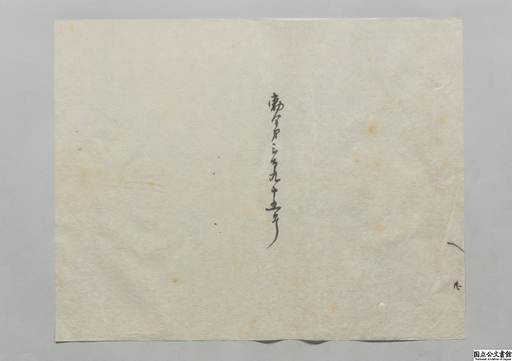 勅令第三百九十五号
国立公文書館
National Archives of Japan